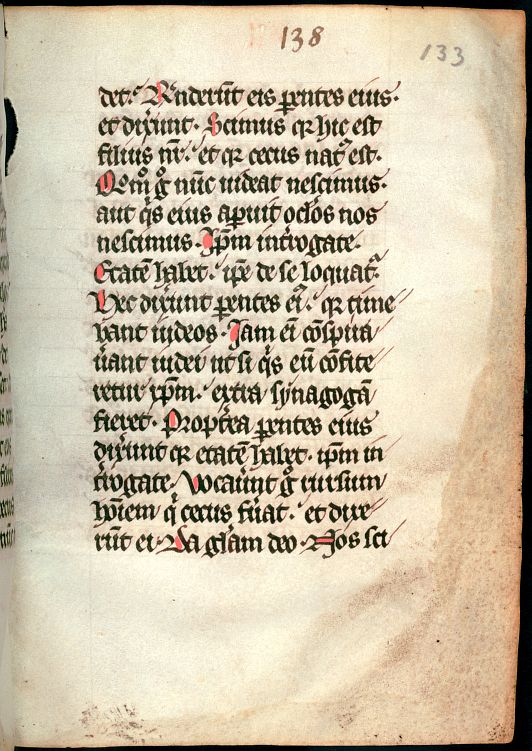 138
133
det. Rn̄derūt eis p̄entes eius.
et dixunt. Scimus qr hic est
filius nr̄. et qr cecus nat᷒ est.
Qom̊ gͦ nūc uideat nescimus.
aut q̄s eius apuit oclōs nos
nescimus. Ip̄m int̄rogate.
Etatē habet. ip̄e de se loquat᷒.
Hec dixunt p̄entes ei᷒. qr time
bant iudeos. Jam eī cōspira
ūant iudei ut si q̄s eū cōfite
retur xp̄m. extra synagogā
fieret. Propt̄ea p̄entes eius
dixunt qr etatē habet. ip̄m in
t̄rogate. Vocaūnt gͦ rursum
hōīem q̄ cecus fūat. et dixe
rūt ei. Da glām deo. Nos sci